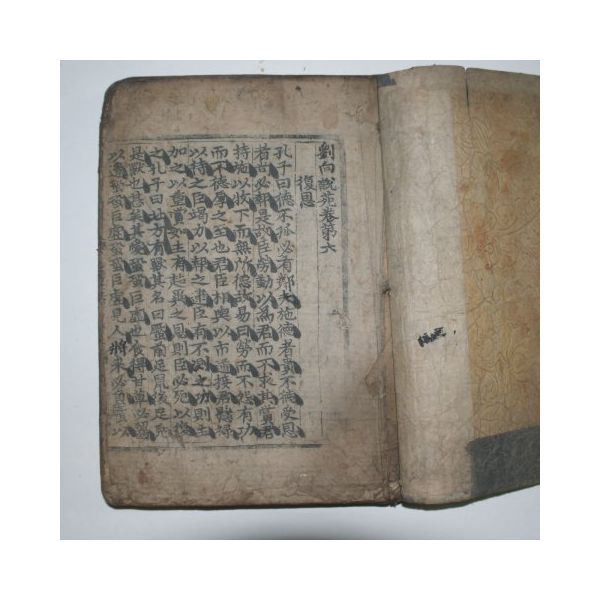 劉向說苑卷第六
復恩
孔子曰德不孤必有鄰夫施德者貴不德受恩
者尚必報是故臣勞勤以為君而不求其賞君
持施以牧下而無所德故易曰勞而不怨有功
而不德厚之至也君臣相與以市道接君懸祿
以待之臣竭力以報之逮臣有不測之功則主
加之以重賞如主有超異之恩則臣必死以復
之孔子曰北方有獸其名曰蟨前足鼠後足兔
是獸也甚矣其愛蛩蛩巨虛也食得甘草必齧
以遺蛩蛩巨虛蛩蛩巨虛見人將來必負蟨以